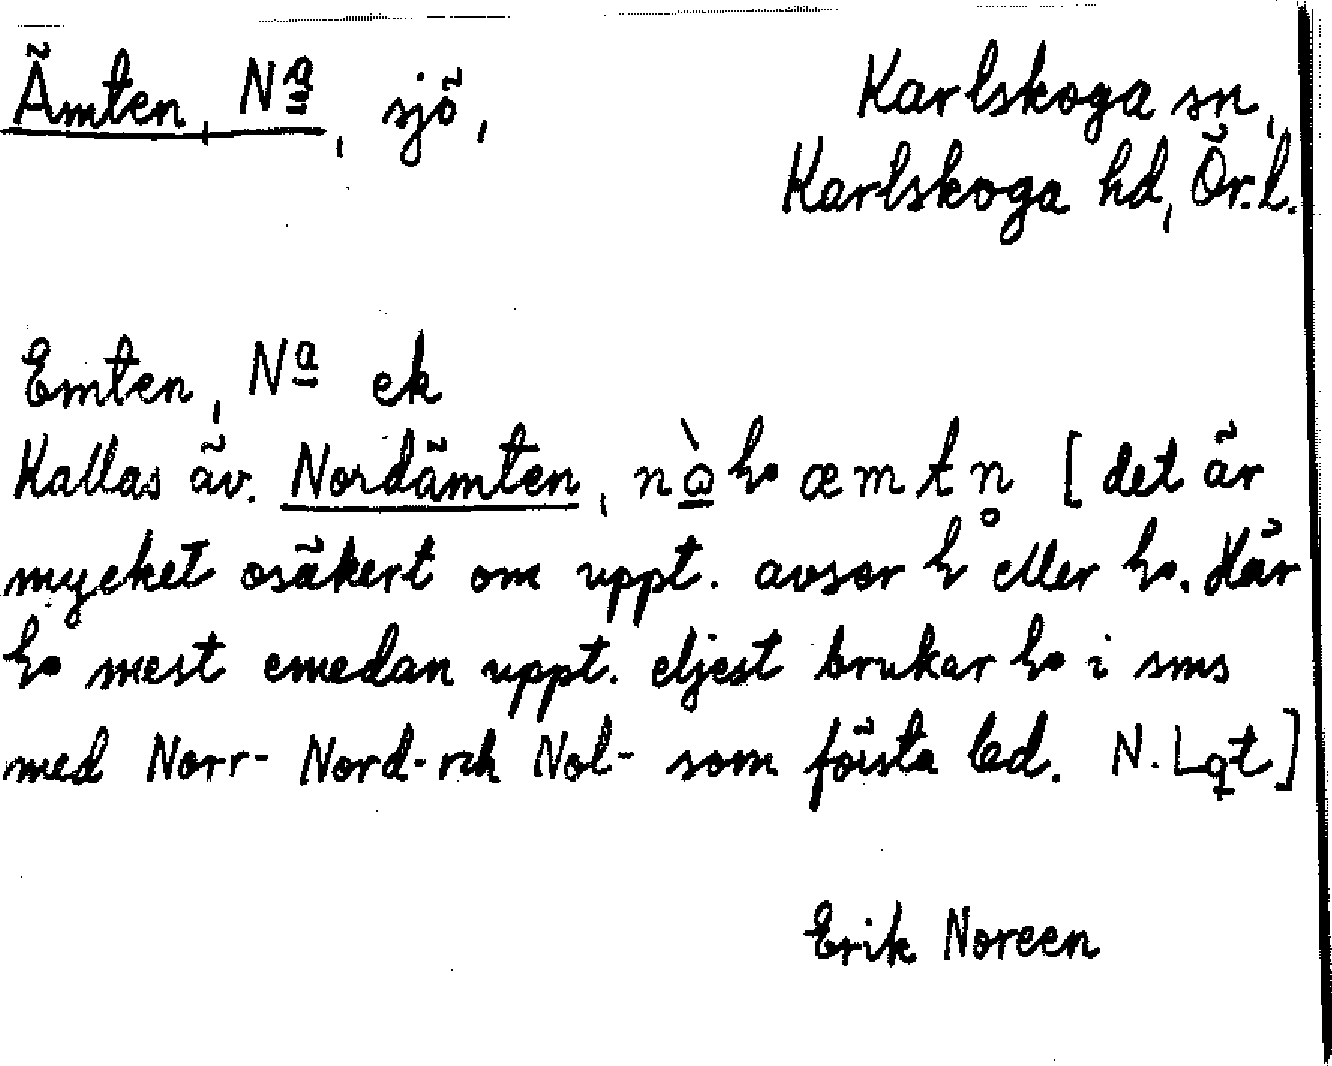 Ämten, Nª, sjö, Karlskoga sn,
Karlskoga hd, Ör.l.
Emten, Nª ek
Kallas äv. Nordämten, [det är
mycket osäkert om uppt. avser eller Här
mest emedan uppt. eljest brukar i sms
med Norr- Nord- och Nol- som första led. N. Lqt]
Erik Noreen